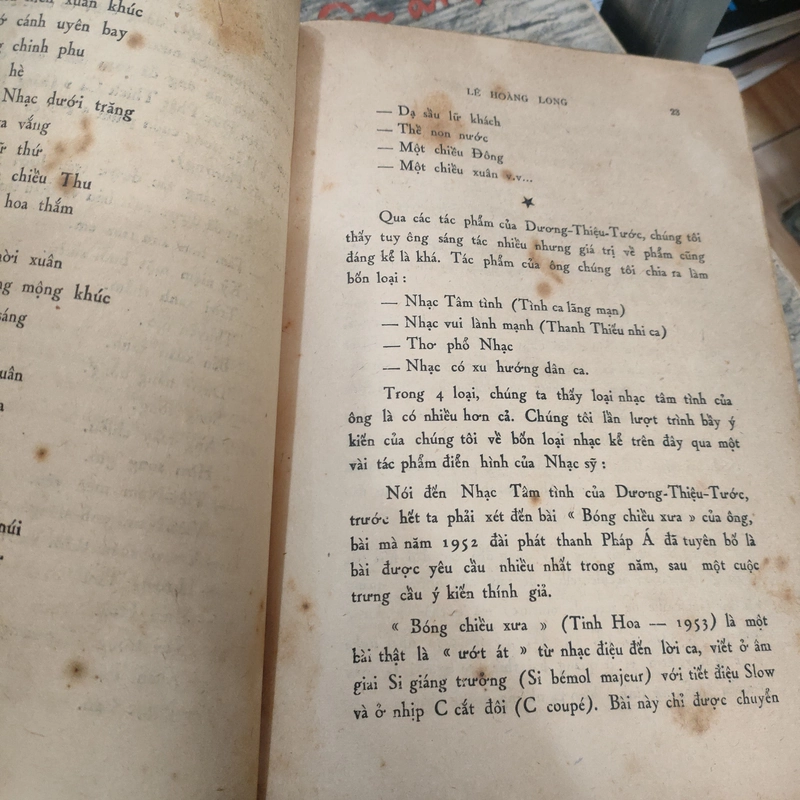 xuân khúc
cánh uyên bay
chinh phu
hè
Nhạc dưới trăng
vắng
thứ
chiều Thu
hoa thắm
xuân
mộng khúc
LÊ HOÀNG LONG
23
— Dạ sầu lữ khách
— Thề non nước
— Một chiều Đông
— Một chiều xuân v.v...
★
Qua các tác phẩm của Dương-Thiệu-Tước, chúng tôi
thấy tuy ông sáng tác nhiều nhưng giá trị về phẩm cũng
đáng kể là khá. Tác phẩm của ông chúng tôi chia ra làm
bốn loại :
— Nhạc Tâm tình (Tình ca lãng mạn)
— Nhạc vui lành mạnh (Thanh Thiếu nhi ca)
— Thơ phổ Nhạc
— Nhạc có xu hướng dân ca.
Trong 4 loại, chúng ta thấy loại nhạc tâm tình của
ông là có nhiều hơn cả. Chúng tôi lần lượt trình bầy ý
kiến của chúng tôi về bốn loại nhạc kể trên đây qua một
vài tác phẩm điển hình của Nhạc sỹ :
Nói đến Nhạc Tâm tình của Dương-Thiệu-Tước,
trước hết ta phải xét đến bài « Bóng chiều xưa » của ông,
bài mà năm 1952 đài phát thanh Pháp Á đã tuyên bố là
bài được yêu cầu nhiều nhất trong năm, sau một cuộc
trưng cầu ý kiến thính giả.
« Bóng chiều xưa » (Tinh Hoa — 1953) là một
bài thật là « ướt át » từ nhạc điệu đến lời ca, viết ở âm
giai Si giáng trưởng (Si bémol majeur) với tiết điệu Slow
và ở nhịp C cắt đôi (C coupé). Bài này chỉ được chuyển